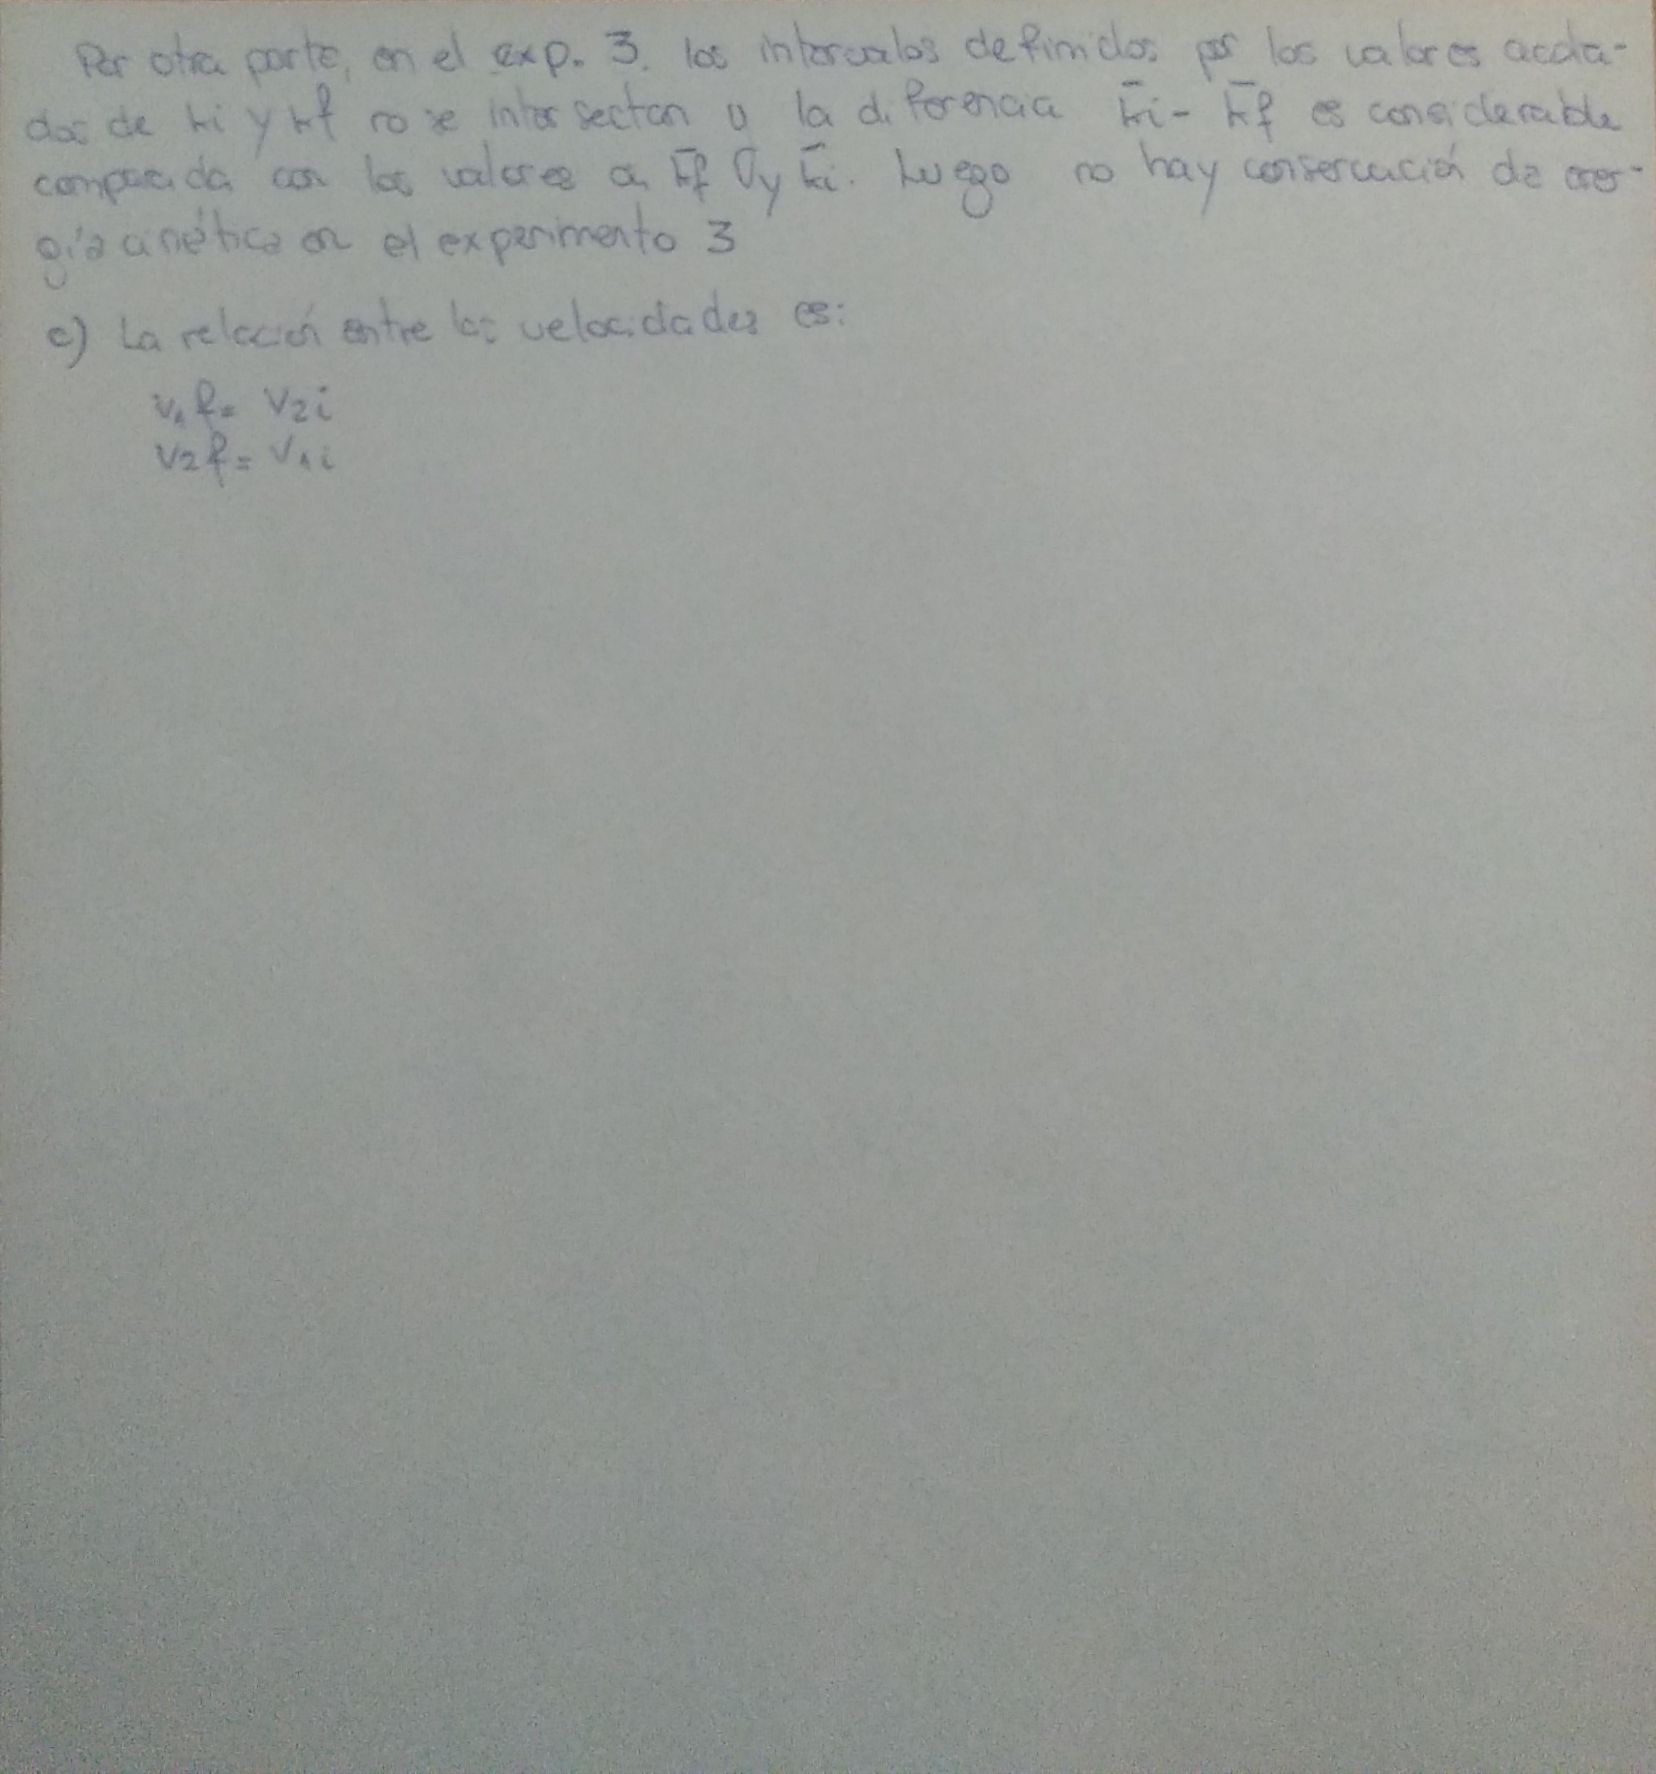 Por otra parte, en el exp. 3. los intervalos definidos por los valores acota-
dos de ki y kf no se intersectan y la diferencia k̄i - k̄f es considerable
comparada con los valores a k̄f y k̄i. Luego no hay conservación de ener-
gía cinética en el experimento 3
c) La relación entre las velocidades es:
v1f = v2i
v2f = v1i